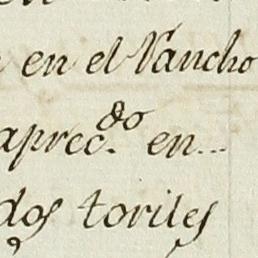 en el Rancho
aprec.do en...
dos toriles